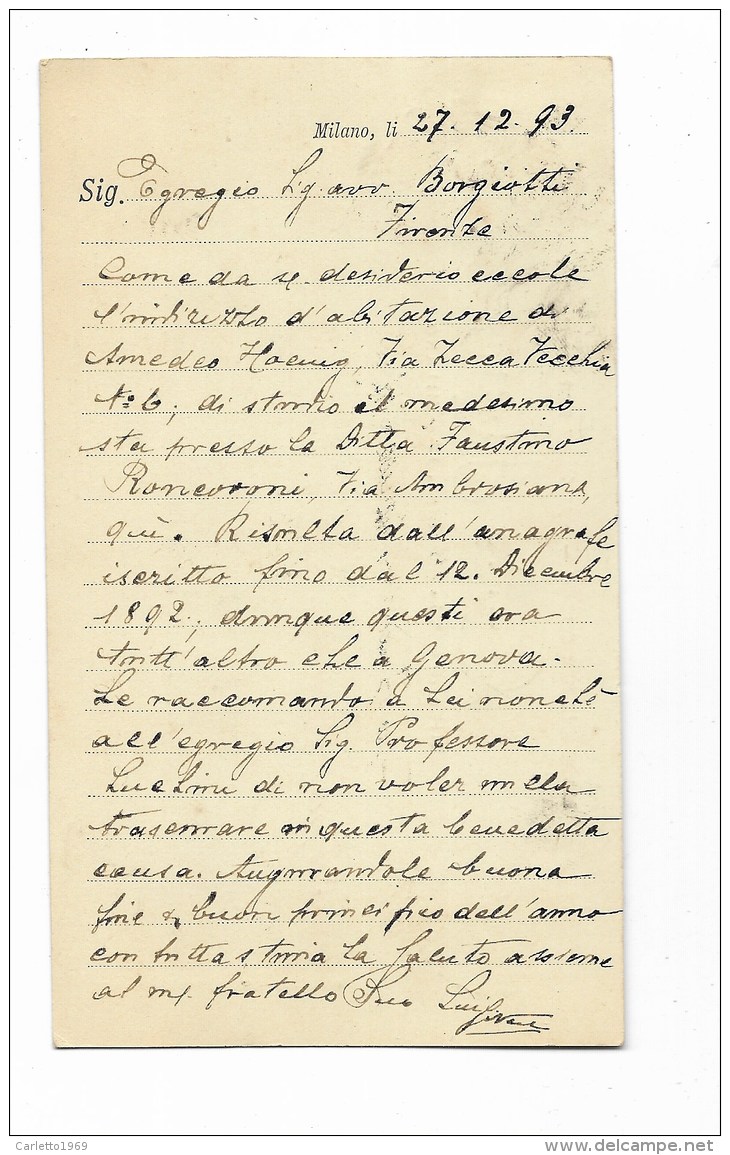 Milano, li 27. 12. 93.
Sig. Egregio Sig. avv. Borgiotti
Firenze
Come da s. desiderio eccole
l'indirizzo d'abitazione di
Amedeo Hoenig, Via Zecca Vecchia
No. 6, di studio el medesimo
sta presso la Ditta Faustino
Roncoroni, Via Ambrosiana,
qui. Risulta dall'anagrafe
iscritto fino dal 12. Dicembre
1892, dunque questi era
tutt'altro che a Genova.
Le raccomando a Lei nonchè
all'egregio Sig. Professore
di non voler nulla
trascurare in questa benedetta
causa. Augurandole buona
fine & buon principio dell'anno
con tutta stima La Saluto assieme
al m. fratello Suo
Carletto1969
www.delcampe.net